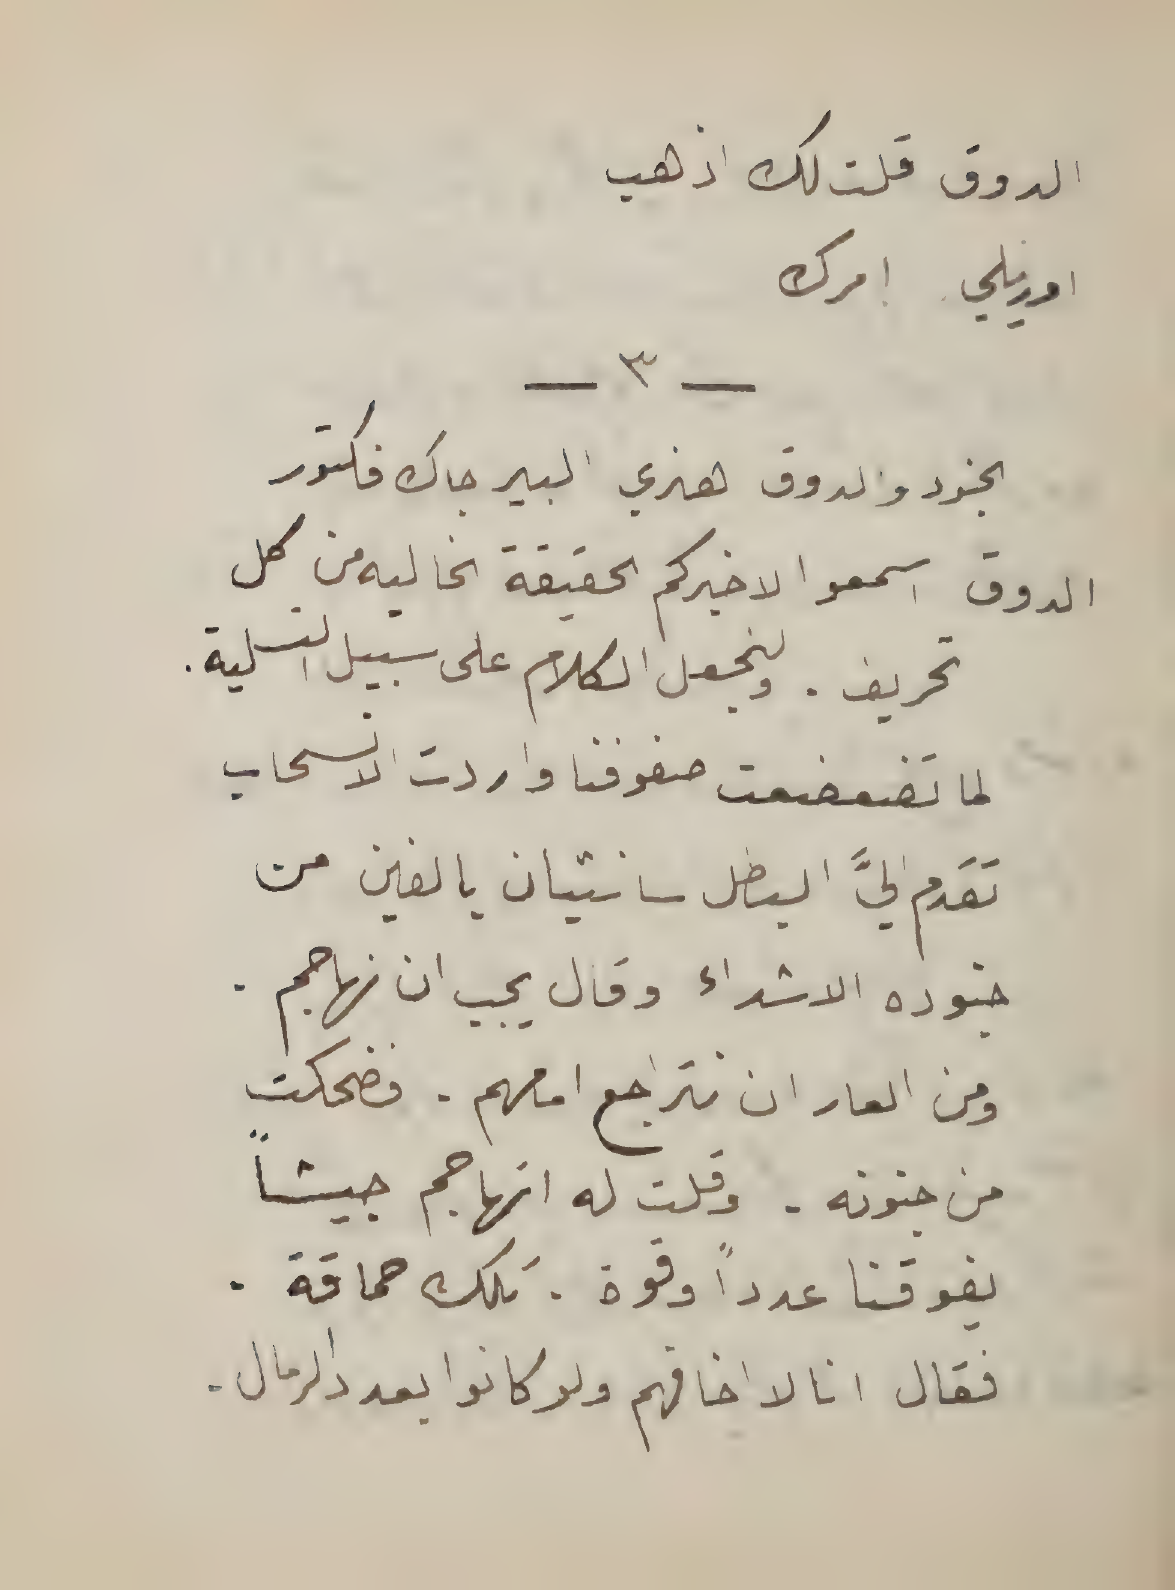 الدوق قلت لك اذهب
اورنلي. امرك
— ٣ —
الجنود والدوق هنري البير جاك فكتور
الدوق اسمعوا لاخبركم الحقيقة الخاليه من كل
تحريف . ولنجعل الكلام على سبيل التسلية .
لما تضعضعت صفوفنا واردت الانسحاب
تقدم اليَّ البطل سانتيان بالفين من
جنوده الاشداء وقال يجب ان نهاجم .
ومن العار ان نتراجع امامهم . فضحكت
من جنونه . وقلت له اتهاجم جيشاً
يفوقنا عدداً وقوة . تلك حماقة .
فقال انا لا اخافهم ولو كانوا بعدد الرمال .